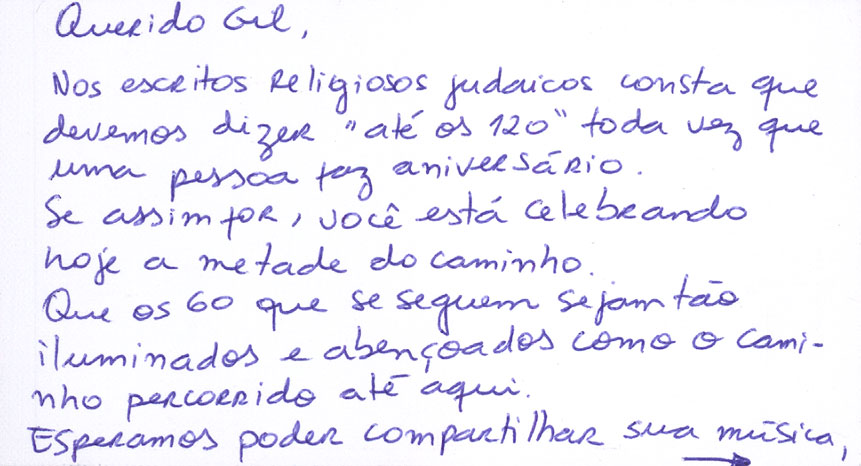 Querido Gil,
Nos escritos religiosos judaicos consta que
devemos dizer "até os 120" toda vez que
uma pessoa faz aniversário.
Se assim for, você está celebrando
hoje a metade do caminho.
Que os 60 que se seguem sejam tão
iluminados e abençoados como o cami-
nho percorrido até aqui.
Esperamos poder compartilhar sua música,